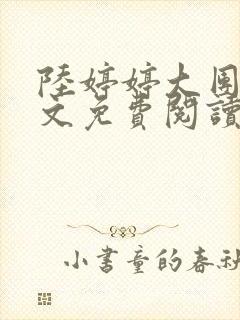 陸婷婷大
文免費閱讀
小書童的春秋